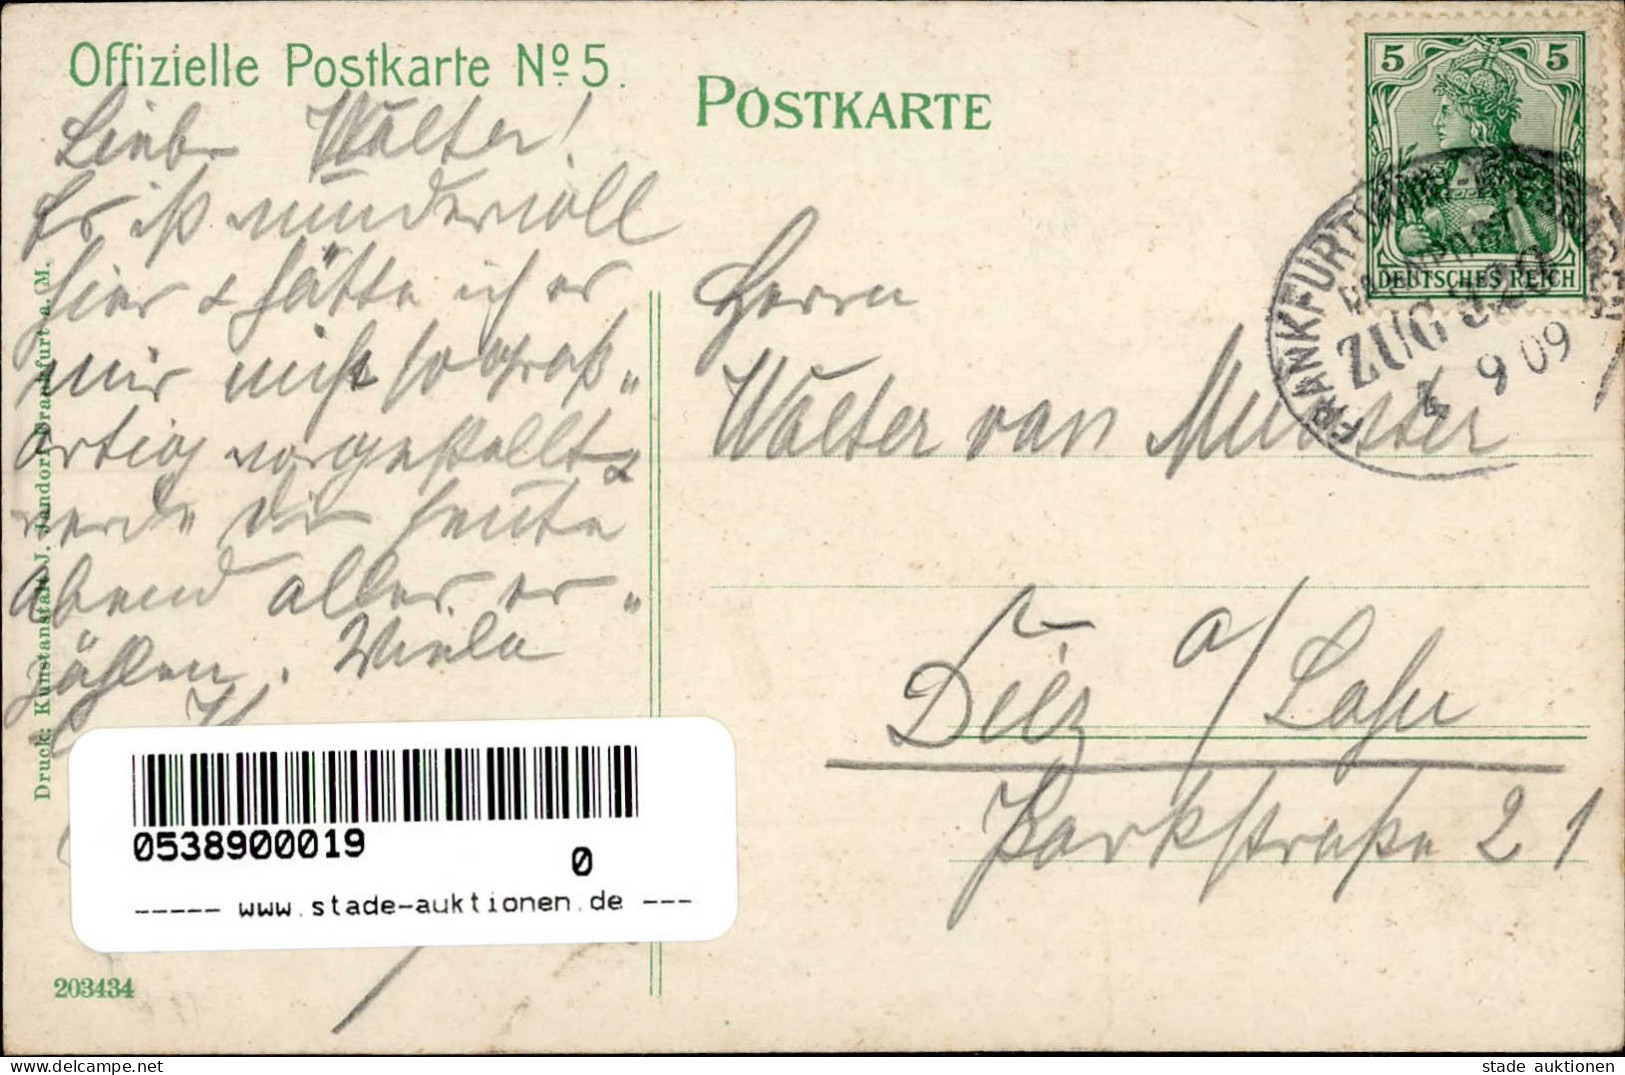 Offizielle Postkarte No 5.
POSTKARTE
5 5
DEUTSCHES REICH
FRANKFURT
BAHNPOST
ZUG
9 09
Lieber Walter!
Es ist wundervoll
hier & hätte ich es
mir nicht so groß„
artig vorgestellt &
werde Dir heute
Abend alles er„
zählen. Viele
Herrn
Walter van Munster
Diez a/Lahn
Parkstraße 21
Druck: Kunstanstalt J. Jandorf Frankfurt a. M.
0538900019
0
----- www.stade-auktionen.de ---
203434
stade auktionen